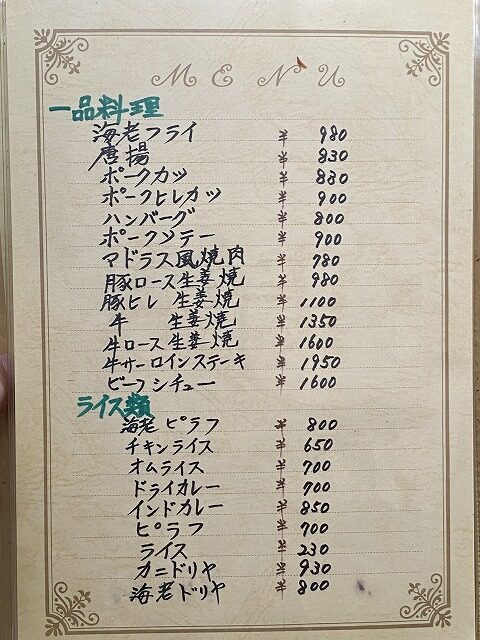 MENU
一品料理
海老フライ ¥ 980
唐揚 ¥ 830
ポークカツ ¥ 830
ポークヒレカツ ¥ 900
ハンバーグ ¥ 800
ポークソテー ¥ 900
マドラス風焼肉 ¥ 780
豚ロース生姜焼 ¥ 980
豚ヒレ 生姜焼 ¥ 1100
牛 生姜焼 ¥ 1350
牛ロース生姜焼 ¥ 1600
牛サーロインステーキ ¥ 1950
ビーフシチュー ¥ 1600
ライス類
海老ピラフ ¥ 800
チキンライス ¥ 650
オムライス ¥ 700
ドライカレー ¥ 700
インドカレー ¥ 850
ピラフ ¥ 700
ライス ¥ 230
カニドリヤ ¥ 930
海老ドリヤ ¥ 800